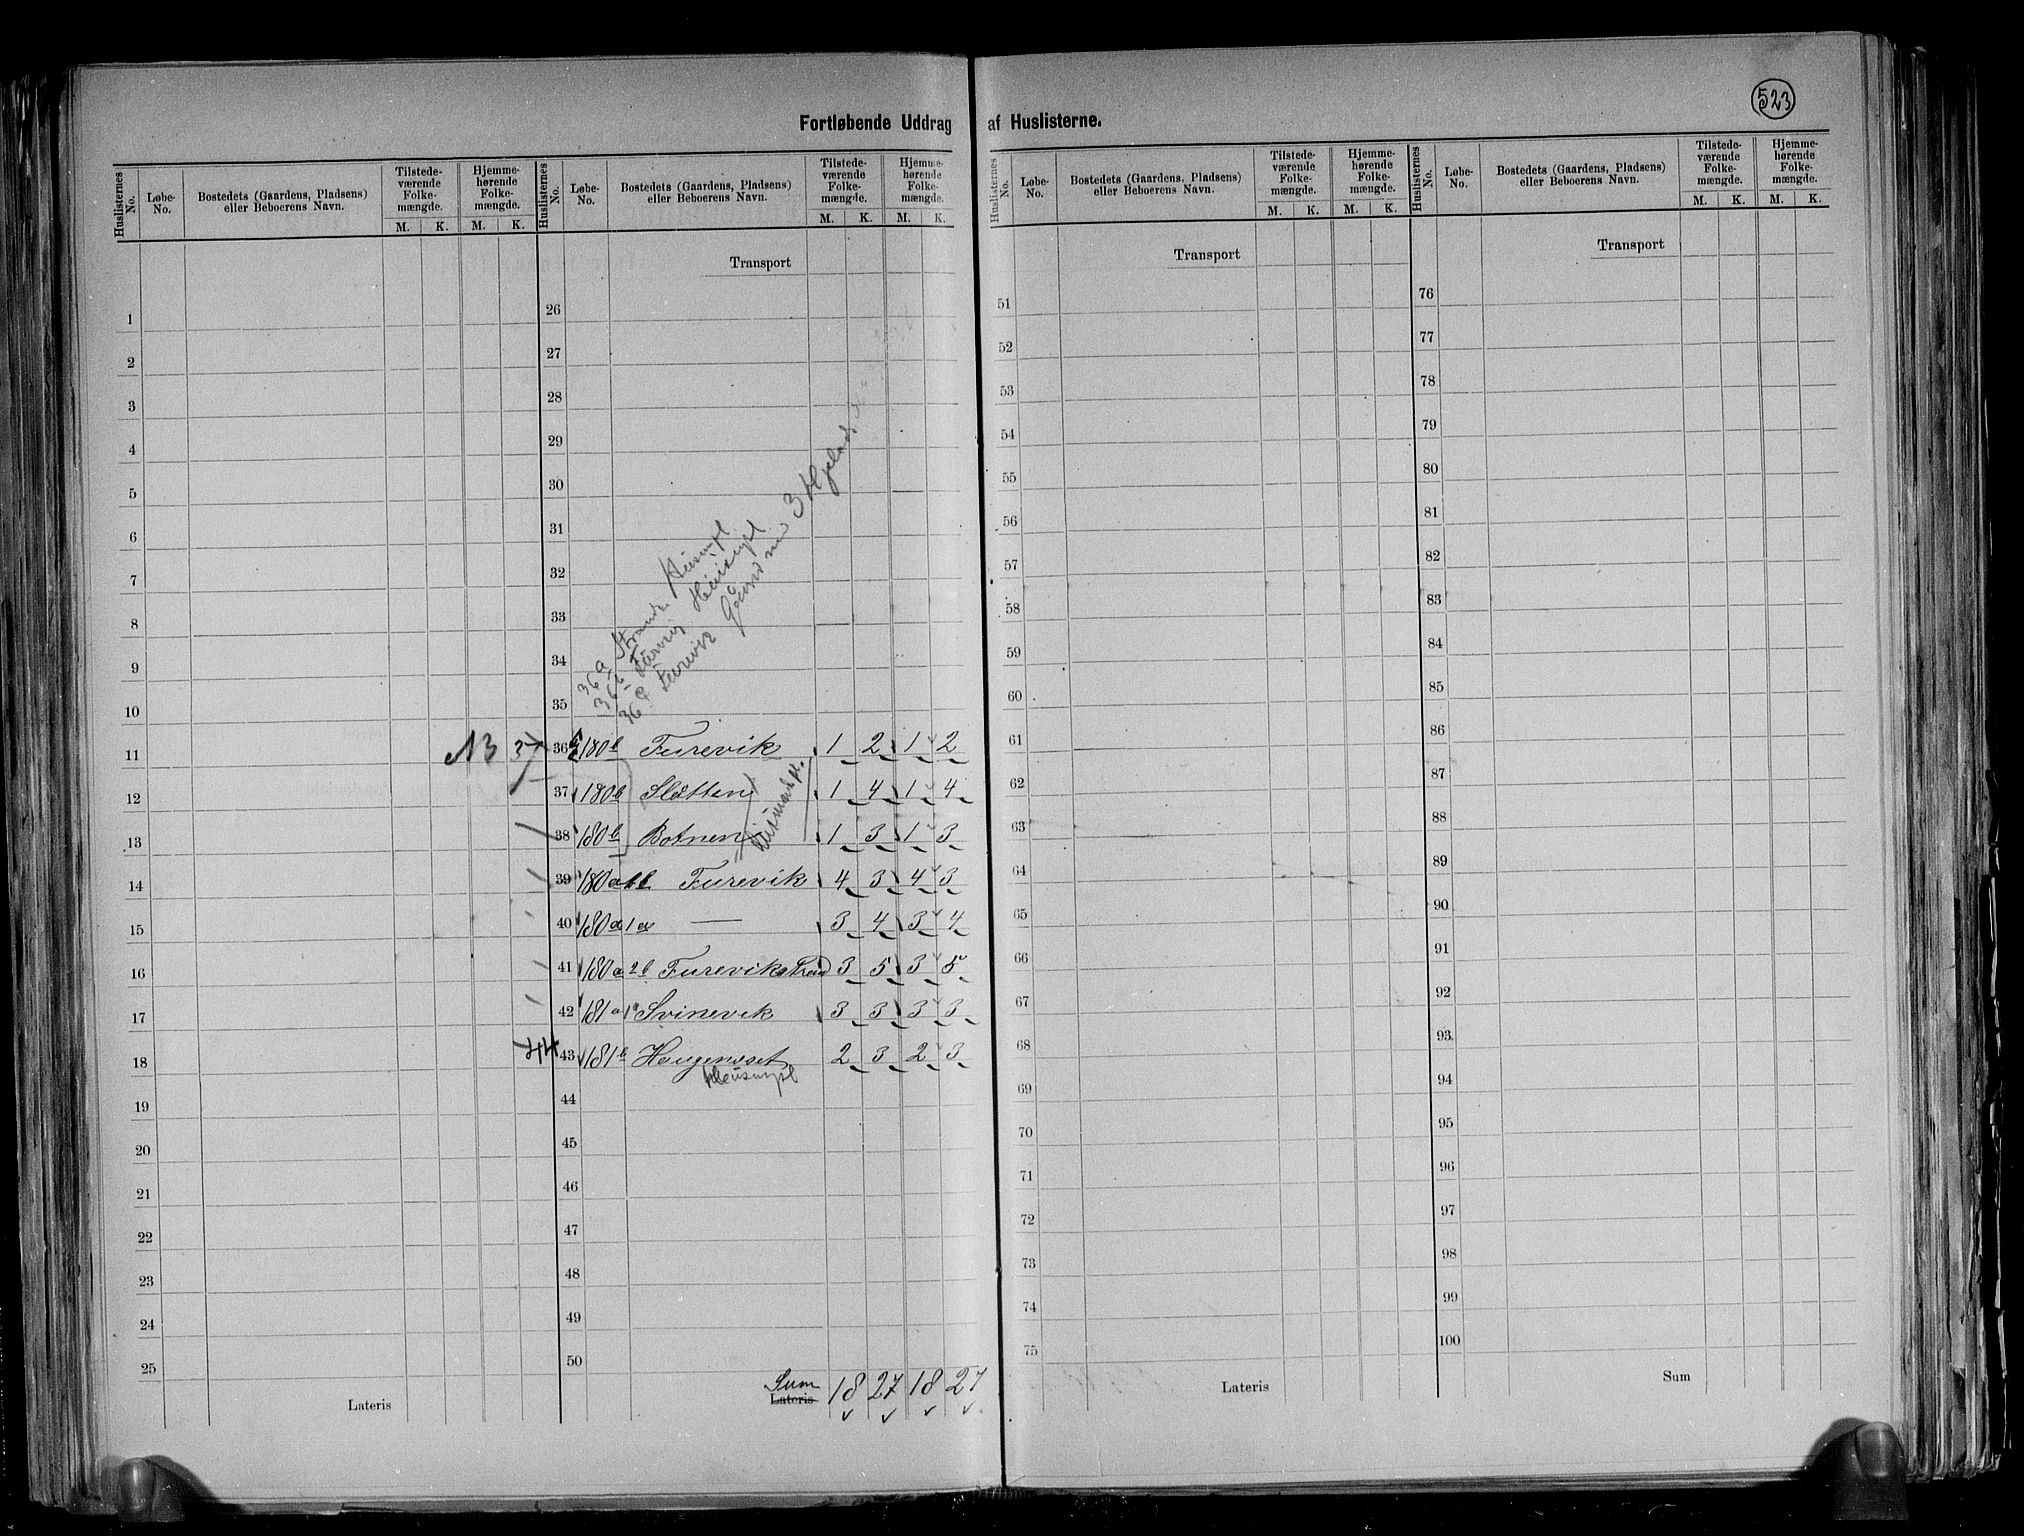 523
Fortløbende Uddrag af Huslisterne.
Huslisternes No. Løbe-No. Bostedets (Gaardens, Pladsens) eller Beboerens Navn. Tilstede-værende Folke-mængde. Hjemme-hørende Folke-mængde.
M. K. M. K.
1
2
3
4
5
6
7
8
9
10
11
12
13
14
15
16
17
18
19
20
21
22
23
24
25
Lateris
Huslisternes No. Løbe-No. Bostedets (Gaardens, Pladsens) eller Beboerens Navn. Tilstede-værende Folke-mængde. Hjemme-hørende Folke-mængde.
M. K. M. K.
Transport
26
27
28
29
30
31
32
33
34
35
36a Strand. Husmpl
36b Furevig Husmpl
36c Furevik
NB 37
36 180b Furevik 1 2 1 2
37 180b Slatten 1 4 1 4
38 180b Botnen 1 3 1 3
Husmandspl.
39 180a 1b Furevik 4 3 4 3
40 180a 1a — 3 4 3 4
41 180a 2b Furevikstrand 3 5 3 5
42 181a 1a Svinevik 3 3 3 3
44
43 181b Haugeneset 2 3 2 3
Husmpl
44
45
46
47
48
49
50
Sum 18 27 18 27
Lateris
Huslisternes No. Løbe-No. Bostedets (Gaardens, Pladsens) eller Beboerens Navn. Tilstede-værende Folke-mængde. Hjemme-hørende Folke-mængde.
M. K. M. K.
Transport
51
52
53
54
55
56
57
58
59
60
61
62
63
64
65
66
67
68
69
70
71
72
73
74
75
Lateris
Huslisternes No. Løbe-No. Bostedets (Gaardens, Pladsens) eller Beboerens Navn. Tilstede-værende Folke-mængde. Hjemme-hørende Folke-mængde.
M. K. M. K.
Transport
76
77
78
79
80
81
82
83
84
85
86
87
88
89
90
91
92
93
94
95
96
97
98
99
100
Sum